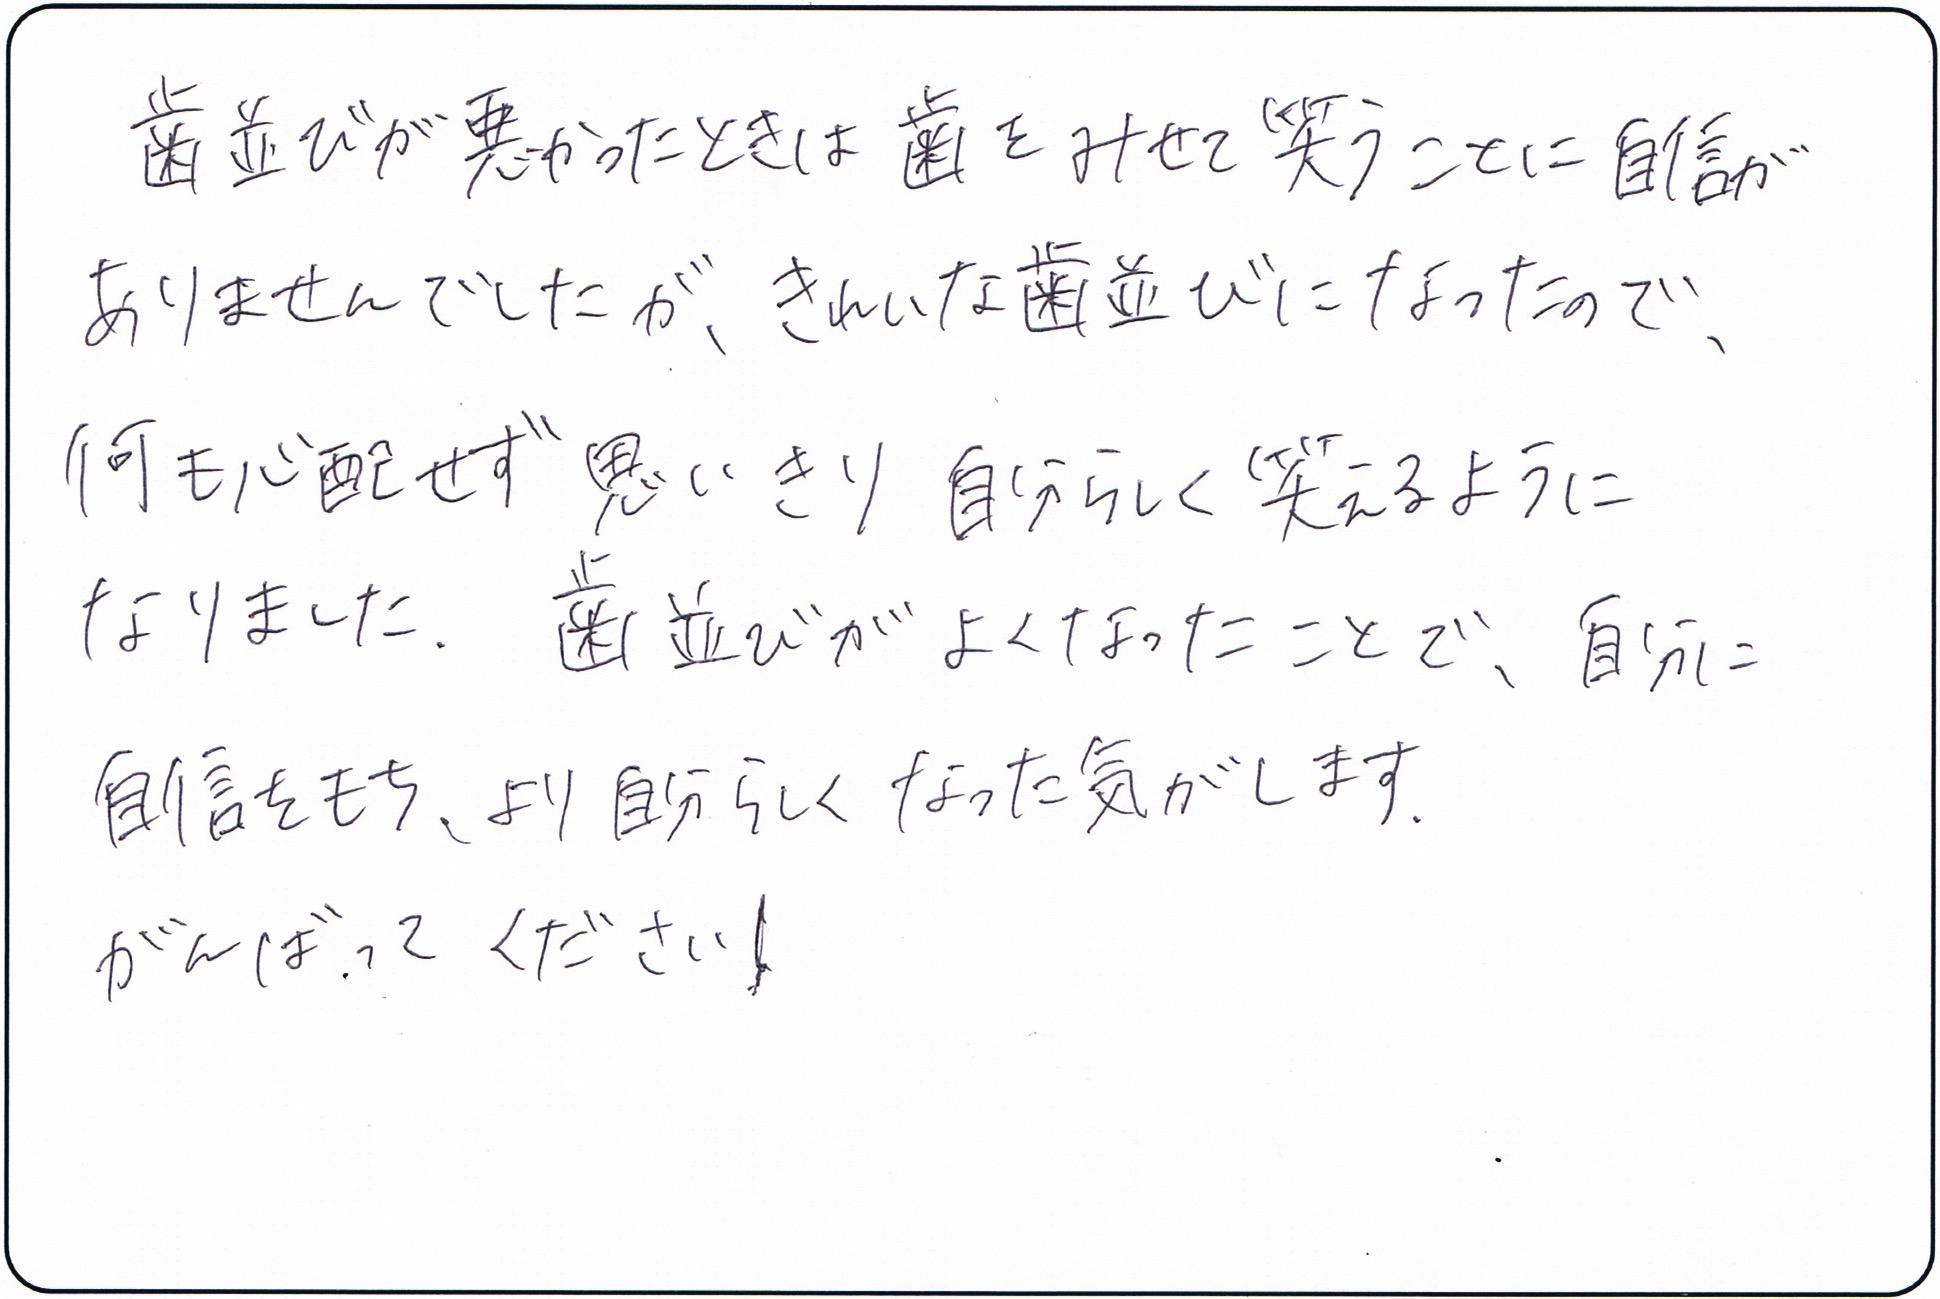 歯並びが悪かったときは歯をみせて笑うことに自信が
ありませんでしたが、きれいな歯並びになったので、
何も心配せず思いきり自分らしく笑えるように
なりました。歯並びがよくなったことで、自分に
自信をもち、より自分らしくなった気がします。
がんばってください!